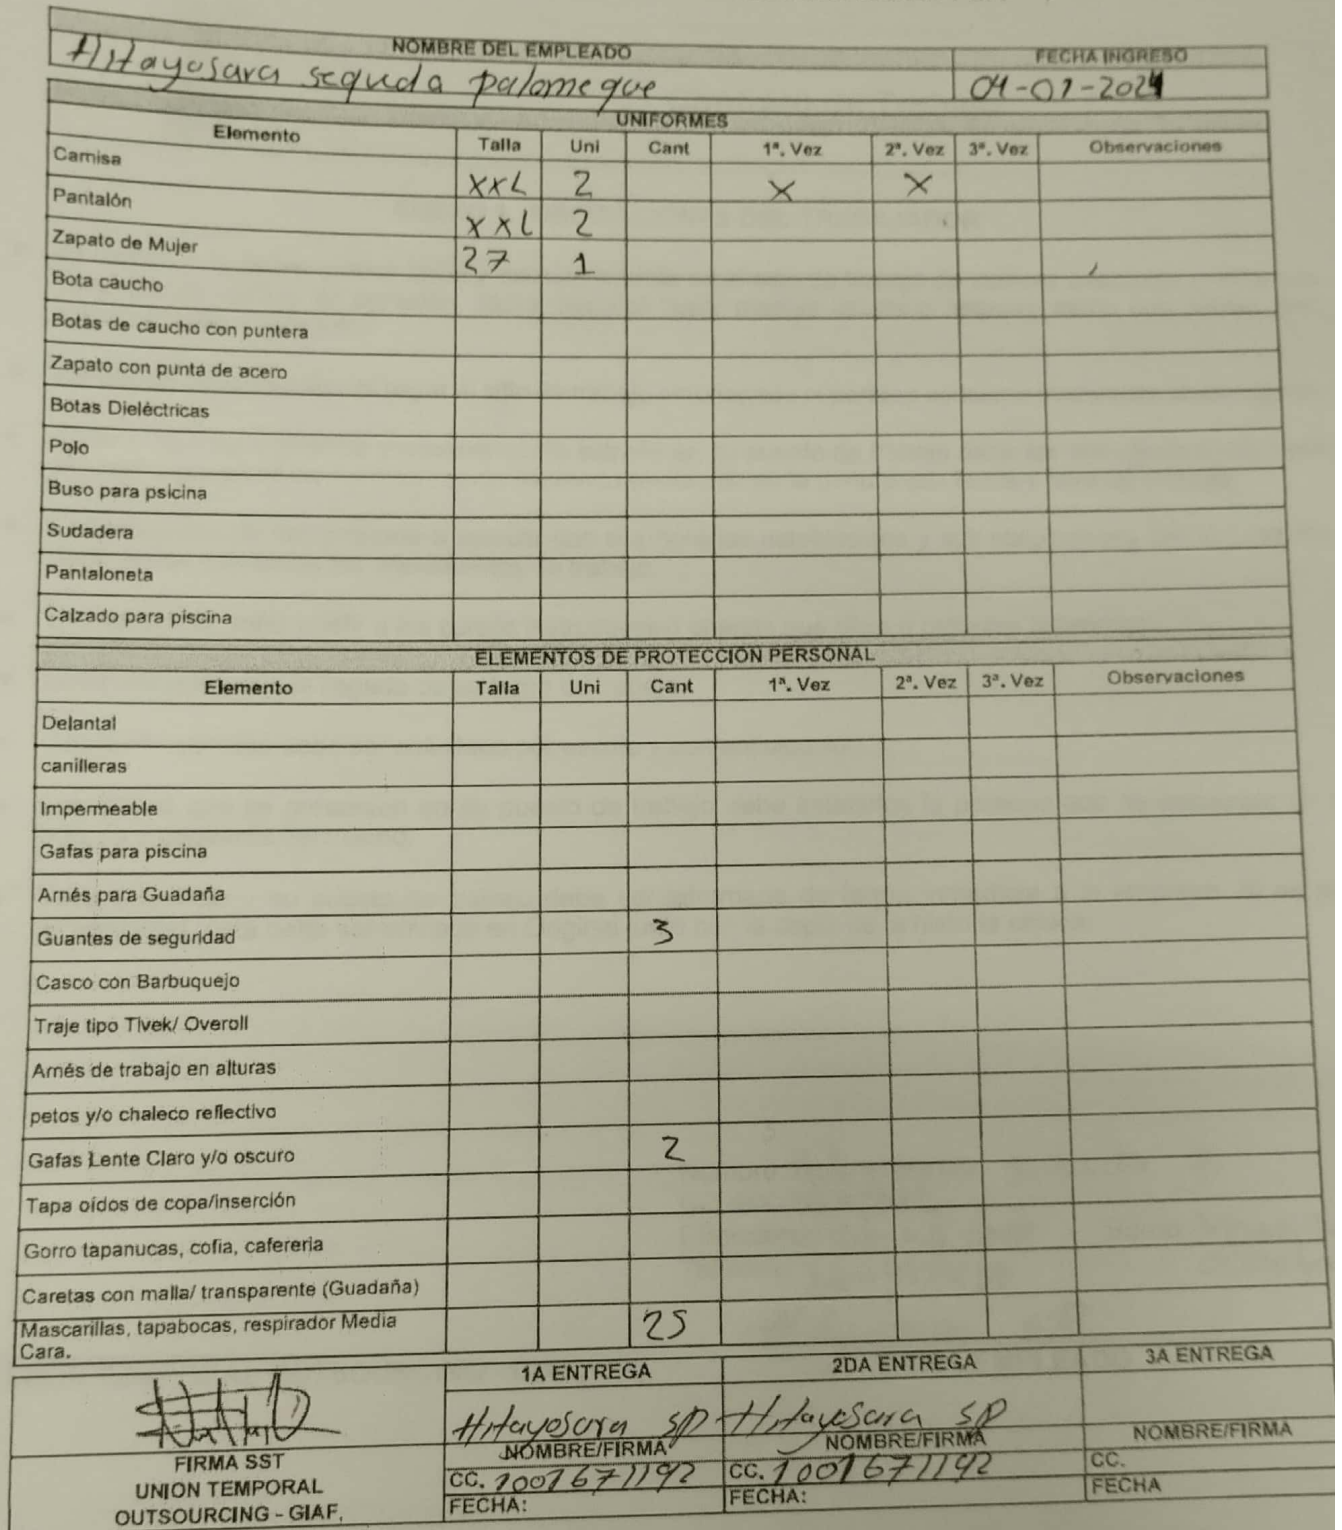 NOMBRE DEL EMPLEADO FECHA INGRESO
Hitayosara seguda palomeque 04-01-2024
UNIFORMES
Elemento Talla Uni Cant 1ª. Vez 2ª. Vez 3ª. Vez Observaciones
Camisa XXL 2 X X
Pantalón XXL 2
Zapato de Mujer 27 1
Bota caucho
Botas de caucho con puntera
Zapato con punta de acero
Botas Dieléctricas
Polo
Buso para psicina
Sudadera
Pantaloneta
Calzado para piscina
ELEMENTOS DE PROTECCION PERSONAL
Elemento Talla Uni Cant 1ª. Vez 2ª. Vez 3ª. Vez Observaciones
Delantal
canilleras
Impermeable
Gafas para piscina
Arnés para Guadaña
Guantes de seguridad 3
Casco con Barbuquejo
Traje tipo Tivek/ Overoll
Arnés de trabajo en alturas
petos y/o chaleco reflectivo
Gafas Lente Claro y/o oscuro 2
Tapa oídos de copa/inserción
Gorro tapanucas, cofia, cafereria
Caretas con malla/ transparente (Guadaña)
Mascarillas, tapabocas, respirador Media
Cara. 25
1A ENTREGA 2DA ENTREGA 3A ENTREGA
Hitayosara SP Hitayosara SP
FIRMA SST NOMBRE/FIRMA NOMBRE/FIRMA NOMBRE/FIRMA
UNION TEMPORAL CC. 1001671192 CC. 1001671192 CC.
OUTSOURCING - GIAF. FECHA: FECHA: FECHA